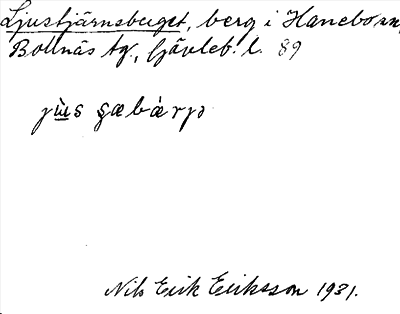 Ljustjärnsberget, berg i Hanebo sn,
Bollnäs tg., Gävleb. l. 89
Nils Erik Eriksson 1931.